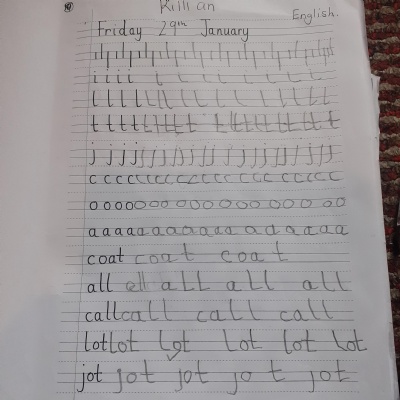 English.
Friday 29th January
i i i i l l l l l l l
l l l l l l l l l l l l l l l
t t t t t t t t t t t t t t t t t
j j j j j j j j j j j j j j j j j j
c c c c c c c c c c c c c c c c c c c c
o o o o o o o o o o o o o o o o o
a a a a a a a a a a a a a a a a a
coat coat coat
all all all all all
call call call call
lot lot lot lot lot lot
jot jot jot jot jot